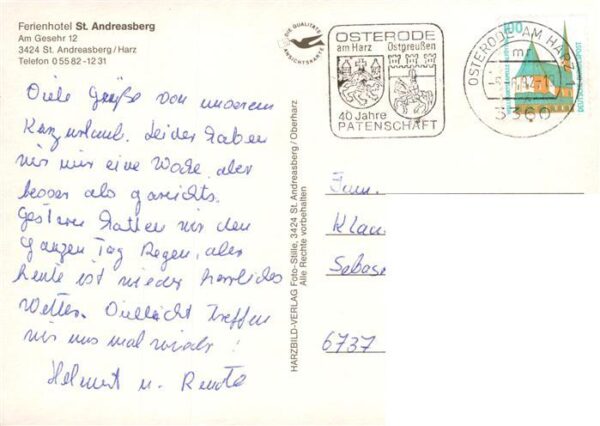 Ferienhotel St. Andreasberg
Am Gesehr 12
3424 St. Andreasberg/Harz
Telefon 0 55 82 - 12 31
DIE QUALITÄTS
ANSICHTSKARTE
OSTERODE
am Harz Ostpreußen
40 Jahre
PATENSCHAFT
OSTERODE AM HARZ
mr
3360
DEUTSCHE BUNDESPOST
Viele Grüße von unserem
Kurzurlaub. Leider haben
wir nur eine Woche, aber
besser als garnichts.
Gestern hatten wir den
ganzen Tag Regen, aber
heute ist wieder herrliches
Wetter. Vielleicht treffen
wir uns mal wieder!
Helmut u. Renate
HARZBILD-VERLAG Foto-Stille, 3424 St. Andreasberg/Oberharz
Alle Rechte vorbehalten
Fam.
Klau
Sebas
6737